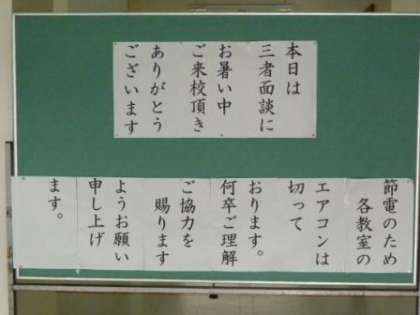 本日は
三者面談に
お暑い中
ご来校頂き
ありがとう
ございます
節電のため
各教室の
エアコンは
切って
おります。
何卒ご理解
ご協力を
賜ります
ようお願い
申し上げ
ます。